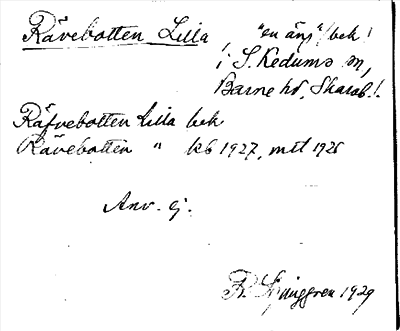 Rävebotten Lilla, "en äng"/bek!
i S. Kedums sn,
Barne hd, Skarab.l.
Räfvebotten Lilla bek
Rävebotten " kb 1927, mtl 1925
Anv. ej.
R. Ljunggren 1929